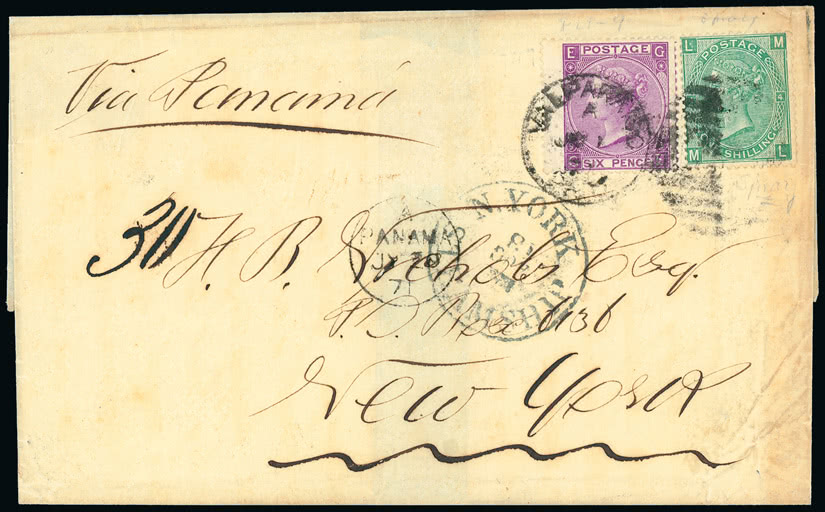 Via Panama
E POSTAGE G
G SIX PENCE
L POSTAGE M
M SHILLING L
VALPARAISO
A
30
PANAMA
71
N. YORK
STEAMSHIP
H. B. Nichols Esq.
P.O. Box 6136
New York